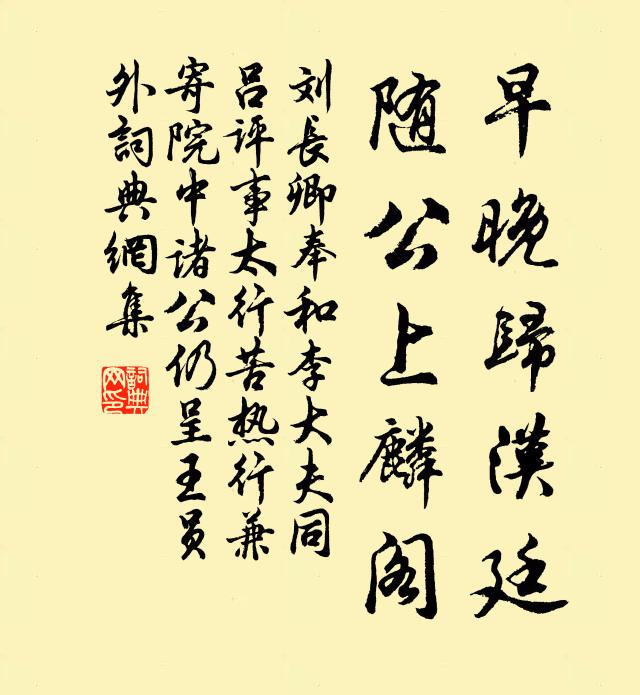 早晚歸漢廷
随公上麟阁
刘長卿奉和李大夫同
吕评事太行苦热行兼
寄院中诸公仍呈王员
外詞典網集
詞典網印